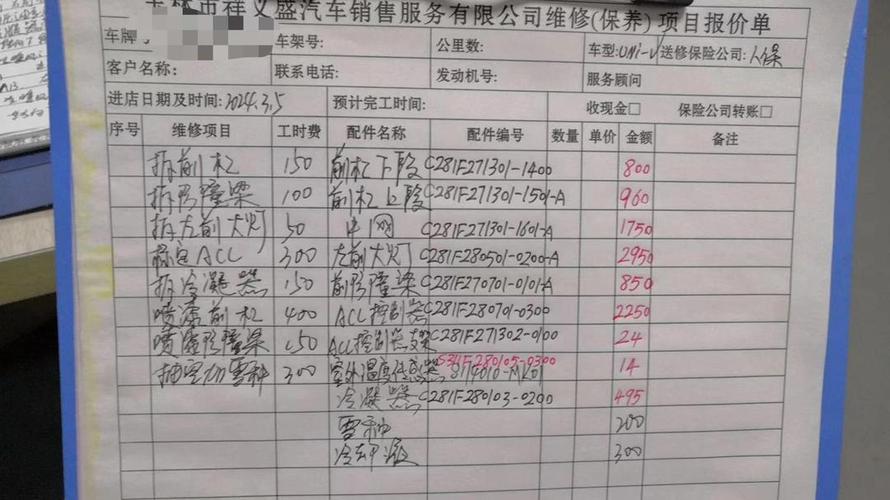 市祥义盛汽车销售服务有限公司维修(保养)项目报价单
车牌号 车架号: 公里数: 车型:UNi-V 送修保险公司:人保
客户名称: 联系电话: 发动机号: 服务顾问
进店日期及时间:2024.3.5 预计完工时间: 收现金□ 保险公司转账□
序号 维修项目 工时费 配件名称 配件编号 数量 单价 金额 备注
拆前杠 150 前杠下段 C281F271301-1400 800
拆防撞梁 100 前杠上段 C281F271301-1501-A 960
拆左前大灯 50 中网 C281F271301-1601-A 1750
标定ACC 300 左前大灯 C281F280501-0200-A 2950
拆冷凝器 150 前防撞梁 C281F270701-0101-A 850
喷漆前杠 400 ACC控制器 C281F280701-0300 2250
喷漆防撞梁 150 ACC控制器支架 C281F271302-0100 24
抽空加雪种 300 室外温度传感器 S34F280105-0300 14
冷凝器 C281F280103-0200 495
雪种 200
冷却液 300